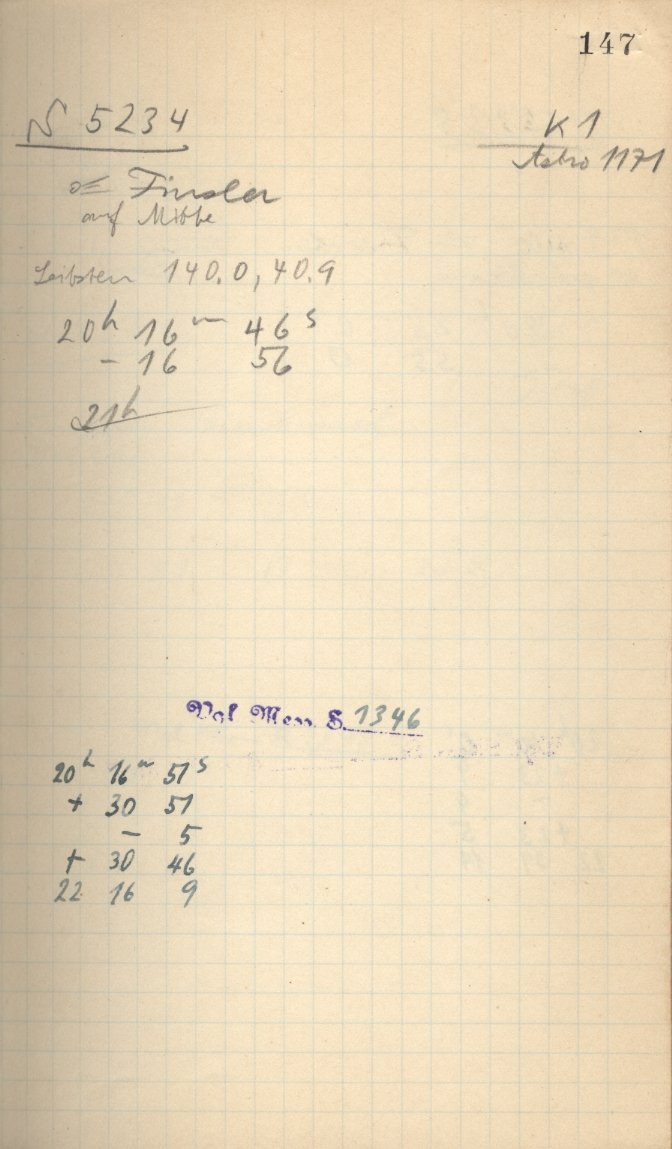 147
N 5234
K 1
Astro 1171
☄ Finsler
auf Mitte
Leitstern 140.0, 40.9
20h 16m 46s
- 16 56
21h
Vgl. Mess. S. 1346
20h 16m 51s
+ 30 51
- 5
+ 30 46
22 16 9